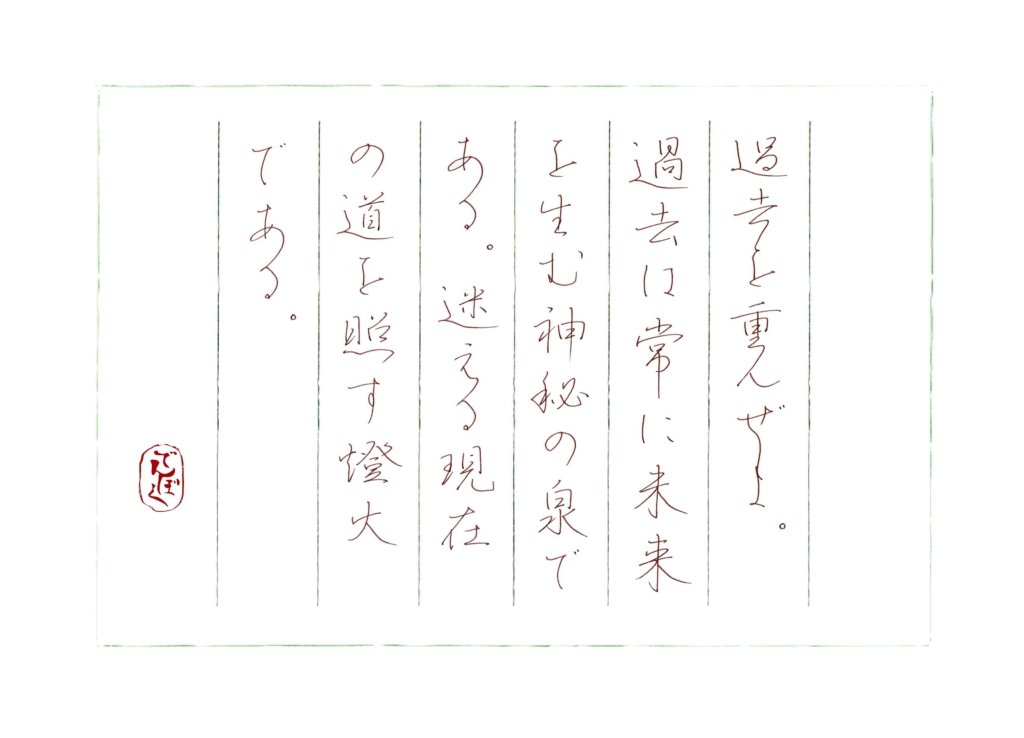 過去を重んぜよ。
過去は常に未来
を生む神秘の泉で
ある。迷える現在
の道を照す燈火
である。